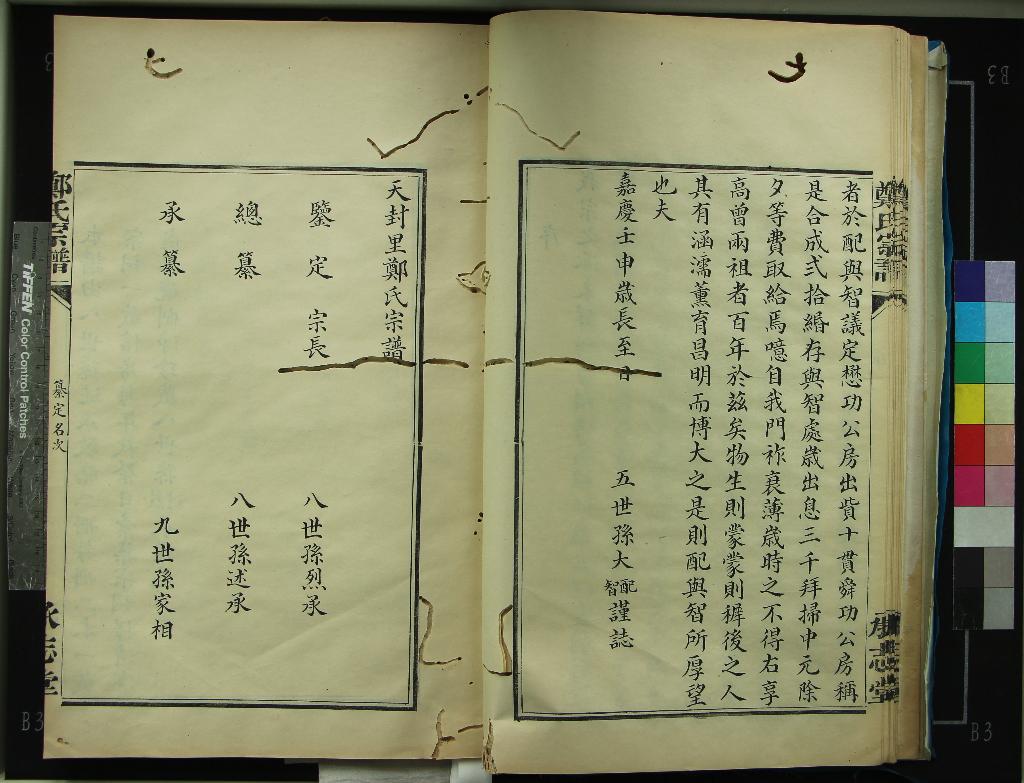 者於配與智議定懋功公房出貲十貫舜功公房稱
是合成弍拾緡存與智處歲出息三千拜掃中元除
夕等費取給焉噫自我門祚衰薄歲時之不得右享
高曾兩祖者百年於茲矣物生則蒙蒙則穉後之人
其有涵濡薰育昌明而博大之是則配與智所厚望
也夫
嘉慶壬申歲長至日
五世孫大配智謹誌
鄭氏宗譜
承志堂
天封里鄭氏宗譜
鑒定 宗長 八世孫烈承
總纂 八世孫述承
承纂 九世孫家相
鄭氏宗譜
纂定名次
承志堂
TIFFEN Color Control Patches
B3
B3
B3